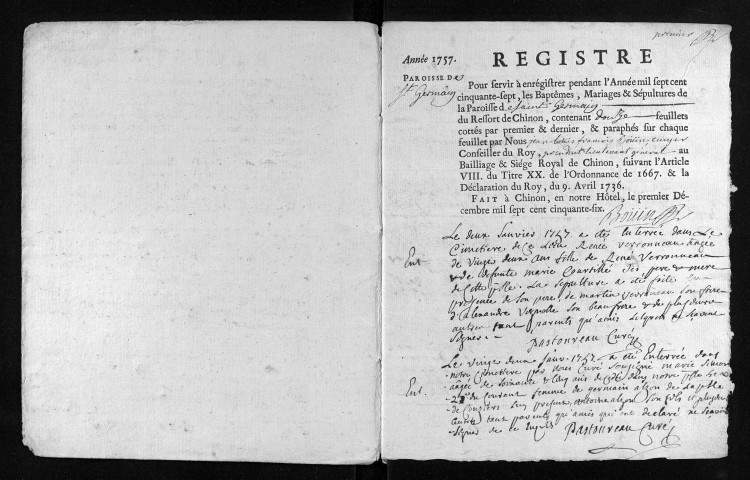 premier
Année 1757.
REGISTRE
PAROISSE De
St Germain
Pour servir à enrégistrer pendant l'Année mil sept cent
cinquante-sept, les Baptêmes, Mariages & Sépultures de
la Paroisse de Saint Germain
du Ressort de Chinon, contenant douze feuillets
cottés par premier & dernier, & paraphés sur chaque
feuillet par Nous Jean Louis francois Boüin ecuyer
Conseiller du Roy, president lieutenant general au
Bailliage & Siége Royal de Chinon, suivant l'Article
VIII. du Titre XX. de l'Ordonnance de 1667. & la
Déclaration du Roy, du 9. Avril 1736.
FAIT à Chinon, en notre Hôtel, le premier Dé-
cembre mil sept cent cinquante-six.
Boüin
Le deux Janvier 1757 a ete Enterrée dans Le
Ent
Cimetiere de Ce Lieu Renée Verronneau aagée
de Vingt deux ans fille de René Verronneau
& de defunte marie Courtillé ses pere & mere
de Cette ville. La Sepulture a été faite en
presence de Son pere, de martin Verroneau Son frere
d'alexandre Son beaufrere & de plusieurs
autres tant parents qu'amis Lesquels
Signer
Pastouveau Curé
Le Vingt deux Janv. 1757 a été Enterrée dans
notre Cimetiere par nous Curé Soussigné marie Simon
Ent.
aagée de Soixante & Cinq ans
du Courant femme de germain
Son fils et plusieurs
tant parents qu'amis qui ont declaré ne Scavoir
Signer de ce Enquis
Pastouveau Curé